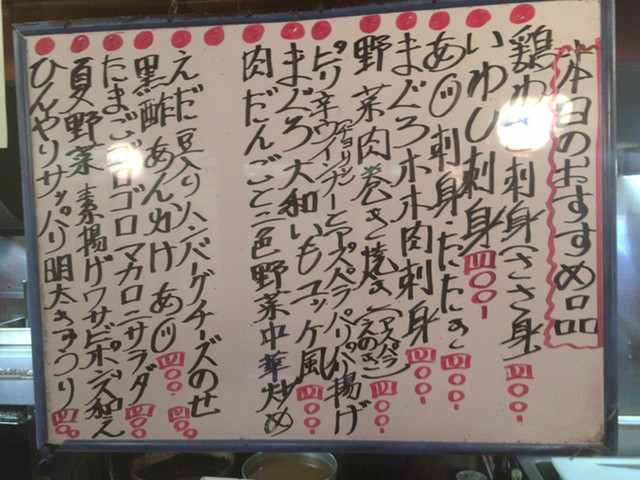 本日のおすすめ品
鶏わさ刺身(ささ身)四〇〇-
いわし刺身四〇〇-
あじ刺身・たたき四〇〇-
まぐろホホ肉刺身四〇〇-
野菜肉巻き焼き(アスパラ えのき)四〇〇-
ピリ辛ウインナー(チョリソー)とアスパラパリパリ揚げ
まぐろ大和いもユッケ風四〇〇-
肉だんごと三色野菜中華炒め
えだ豆入りハンバーグチーズのせ
黒酢あんかけあじ四〇〇-
たまごゴロゴロマカロニサラダ四〇〇-
夏野菜素揚げワサビポン酢和え
ひんやりサッパリ明太きゅうり四〇〇-